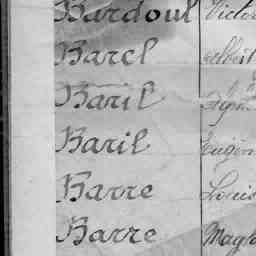 Bardoul Victor
Barel Albert
Baril
Baril Eugèn
Barre Louis
Barre Magl